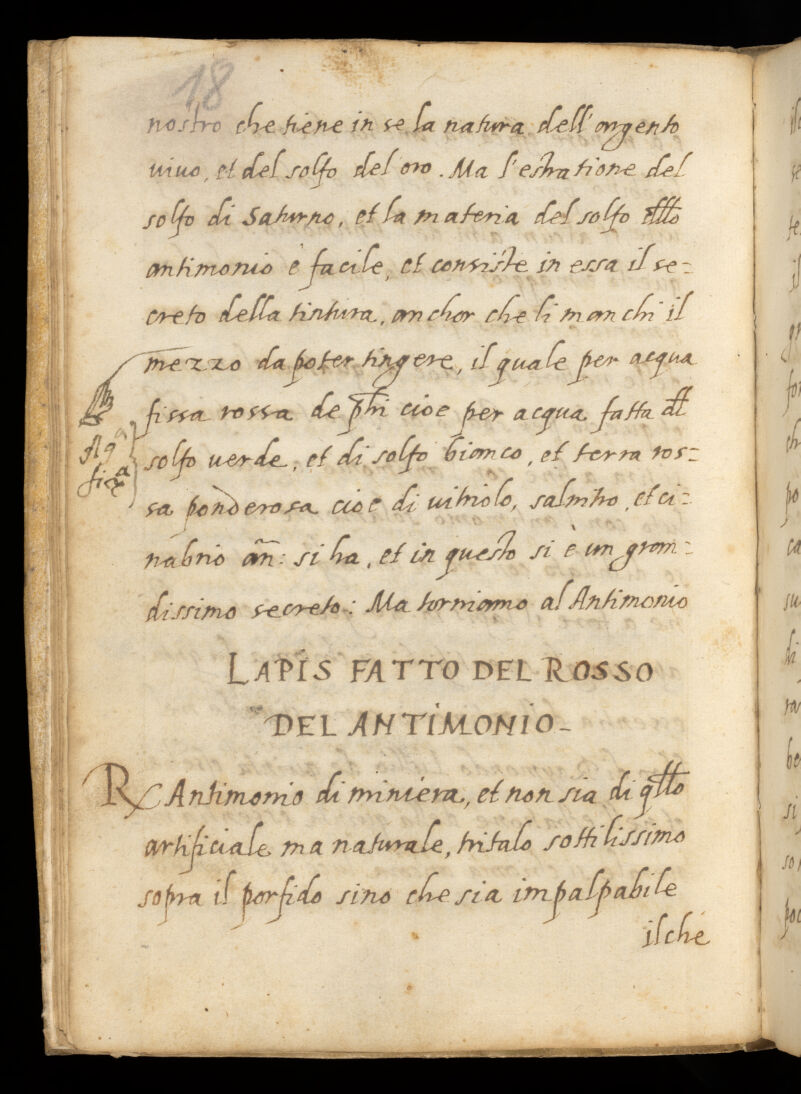 18
nostro che tiene in se la natura dell'argento
uiuo, et del solfo del oro. Ma l'estratione del
solfo di Saturno, et la materia del solfo dllo
antimonio è facile, et consiste in essa il se=
creto della tintura, anchor che li manchi il
mezzo da poter tingere, il quale per acqua
fissa rossa de phi cioe per acqua fatta dl
solfo uerde, et di solfo bianco, et terra ros=
sa ponderosa cioe di uitriolo, salnitro, et ci=
nabrio an: si ha, et in questo si è un gran=
dissimo secreto: Ma torniamo al Antimonio
LAPIS FATTO DEL ROSSO
DEL ANTIMONIO-
R Antimonio di miniera, et non sia di qllo
artificiale ma naturale, tritalo sottilissimo
sopra il porfido sino che sia impalpabile
ilche